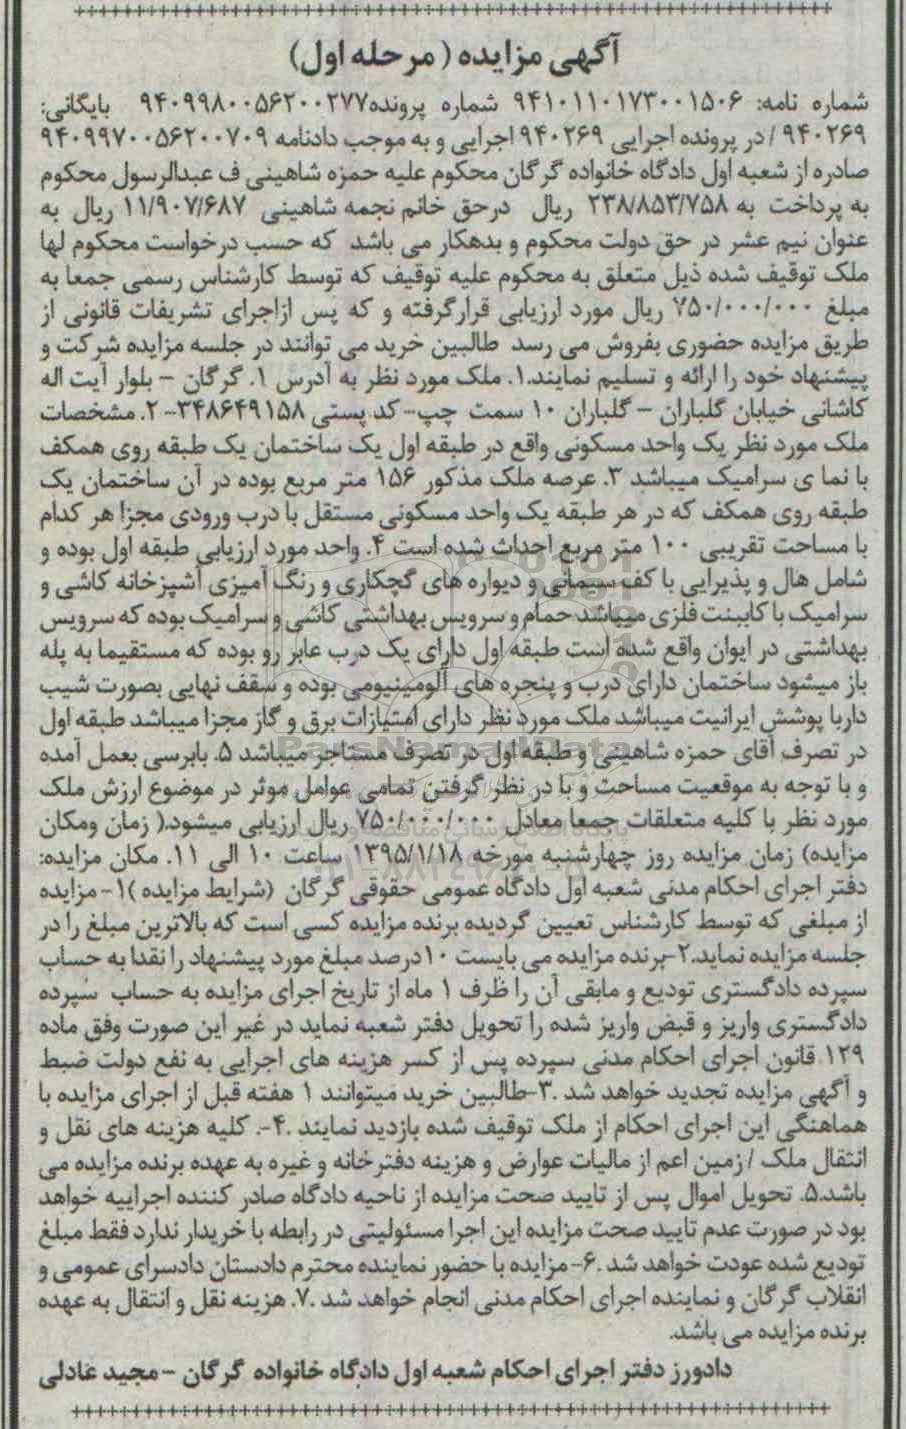 آگهی مزایده ( مرحله اول)
شماره نامه: ۹۴۱۰۱۱۰۱۷۳۰۰۱۵۰۶ شماره پرونده۹۴۰۹۹۸۰۰۵۶۲۰۰۲۷۷ بایگانی:
۹۴۰۲۶۹ / در پرونده اجرایی ۹۴۰۲۶۹ اجرایی و به موجب دادنامه ۹۴۰۹۹۷۰۰۵۶۲۰۰۷۰۹
صادره از شعبه اول دادگاه خانواده گرگان محکوم علیه حمزه شاهینی ف عبدالرسول محکوم
به پرداخت به ۲۳۸/۸۵۳/۷۵۸ ریال درحق خانم نجمه شاهینی ۱۱/۹۰۷/۶۸۷ ریال به
عنوان نیم عشر در حق دولت محکوم و بدهکار می باشد که حسب درخواست محکوم لها
ملک توقیف شده ذیل متعلق به محکوم علیه توقیف که توسط کارشناس رسمی جمعا به
مبلغ ۷۵۰/۰۰۰/۰۰۰ ریال مورد ارزیابی قرارگرفته و که پس ازاجرای تشریفات قانونی از
طریق مزایده حضوری بفروش می رسد طالبین خرید می توانند در جلسه مزایده شرکت و
پیشنهاد خود را ارائه و تسلیم نمایند.۱. ملک مورد نظر به آدرس ۱. گرگان – بلوار آیت اله
کاشانی خیابان گلباران – گلباران ۱۰ سمت چپ- کد پستی ۳۴۸۶۴۹۱۵۸- ۲. مشخصات
ملک مورد نظر یک واحد مسکونی واقع در طبقه اول یک ساختمان یک طبقه روی همکف
با نما ی سرامیک میباشد ۳. عرصه ملک مذکور ۱۵۶ متر مربع بوده در آن ساختمان یک
طبقه روی همکف که در هر طبقه یک واحد مسکونی مستقل با درب ورودی مجزا هر کدام
با مساحت تقریبی ۱۰۰ متر مربع احداث شده است ۴. واحد مورد ارزیابی طبقه اول بوده و
شامل هال و پذیرایی با کف سیمانی و دیواره های گچکاری و رنگ آمیزی آشپزخانه کاشی و
سرامیک با کابینت فلزی میباشد حمام و سرویس بهداشتی کاشی و سرامیک بوده که سرویس
بهداشتی در ایوان واقع شده است طبقه اول دارای یک درب عابر رو بوده که مستقیما به پله
باز میشود ساختمان دارای درب و پنجره های آلومینیومی بوده و سقف نهایی بصورت شیب
داربا پوشش ایرانیت میباشد ملک مورد نظر دارای امتیازات برق و گاز مجزا میباشد طبقه اول
در تصرف آقای حمزه شاهینی و طبقه اول در تصرف مستاجر میباشد ۵. بابرسی بعمل آمده
و با توجه به موقعیت مساحت و با در نظر گرفتن تمامی عوامل موثر در موضوع ارزش ملک
مورد نظر با کلیه متعلقات جمعا معادل ۷۵۰/۰۰۰/۰۰۰ ریال ارزیابی میشود.( زمان ومکان
مزایده) زمان مزایده روز چهارشنبه مورخه ۱۳۹۵/۱/۱۸ ساعت ۱۰ الی ۱۱. مکان مزایده:
دفتر اجرای احکام مدنی شعبه اول دادگاه عمومی حقوقی گرگان (شرایط مزایده )۱- مزایده
از مبلغی که توسط کارشناس تعیین گردیده برنده مزایده کسی است که بالاترین مبلغ را در
جلسه مزایده نماید.۲-برنده مزایده می بایست ۱۰درصد مبلغ مورد پیشنهاد را نقدا به حساب
سپرده دادگستری تودیع و مابقی آن را ظرف ۱ ماه از تاریخ اجرای مزایده به حساب سپرده
دادگستری واریز و قبض واریز شده را تحویل دفتر شعبه نماید در غیر این صورت وفق ماده
۱۲۹ قانون اجرای احکام مدنی سپرده پس از کسر هزینه های اجرایی به نفع دولت ضبط
و آگهی مزایده تجدید خواهد شد .۳-طالبین خرید میتوانند ۱ هفته قبل از اجرای مزایده با
هماهنگی این اجرای احکام از ملک توقیف شده بازدید نمایند .۴-. کلیه هزینه های نقل و
انتقال ملک / زمین اعم از مالیات عوارض و هزینه دفترخانه و غیره به عهده برنده مزایده می
باشد.۵. تحویل اموال پس از تایید صحت مزایده از ناحیه دادگاه صادر کننده اجراییه خواهد
بود در صورت عدم تایید صحت مزایده این اجرا مسئولیتی در رابطه با خریدار ندارد فقط مبلغ
تودیع شده عودت خواهد شد .۶- مزایده با حضور نماینده محترم دادستان دادسرای عمومی و
انقلاب گرگان و نماینده اجرای احکام مدنی انجام خواهد شد .۷. هزینه نقل و انتقال به عهده
برنده مزایده می باشد.
دادورز دفتر اجرای احکام شعبه اول دادگاه خانواده گرگان - مجید عادلی
ParsNamadData